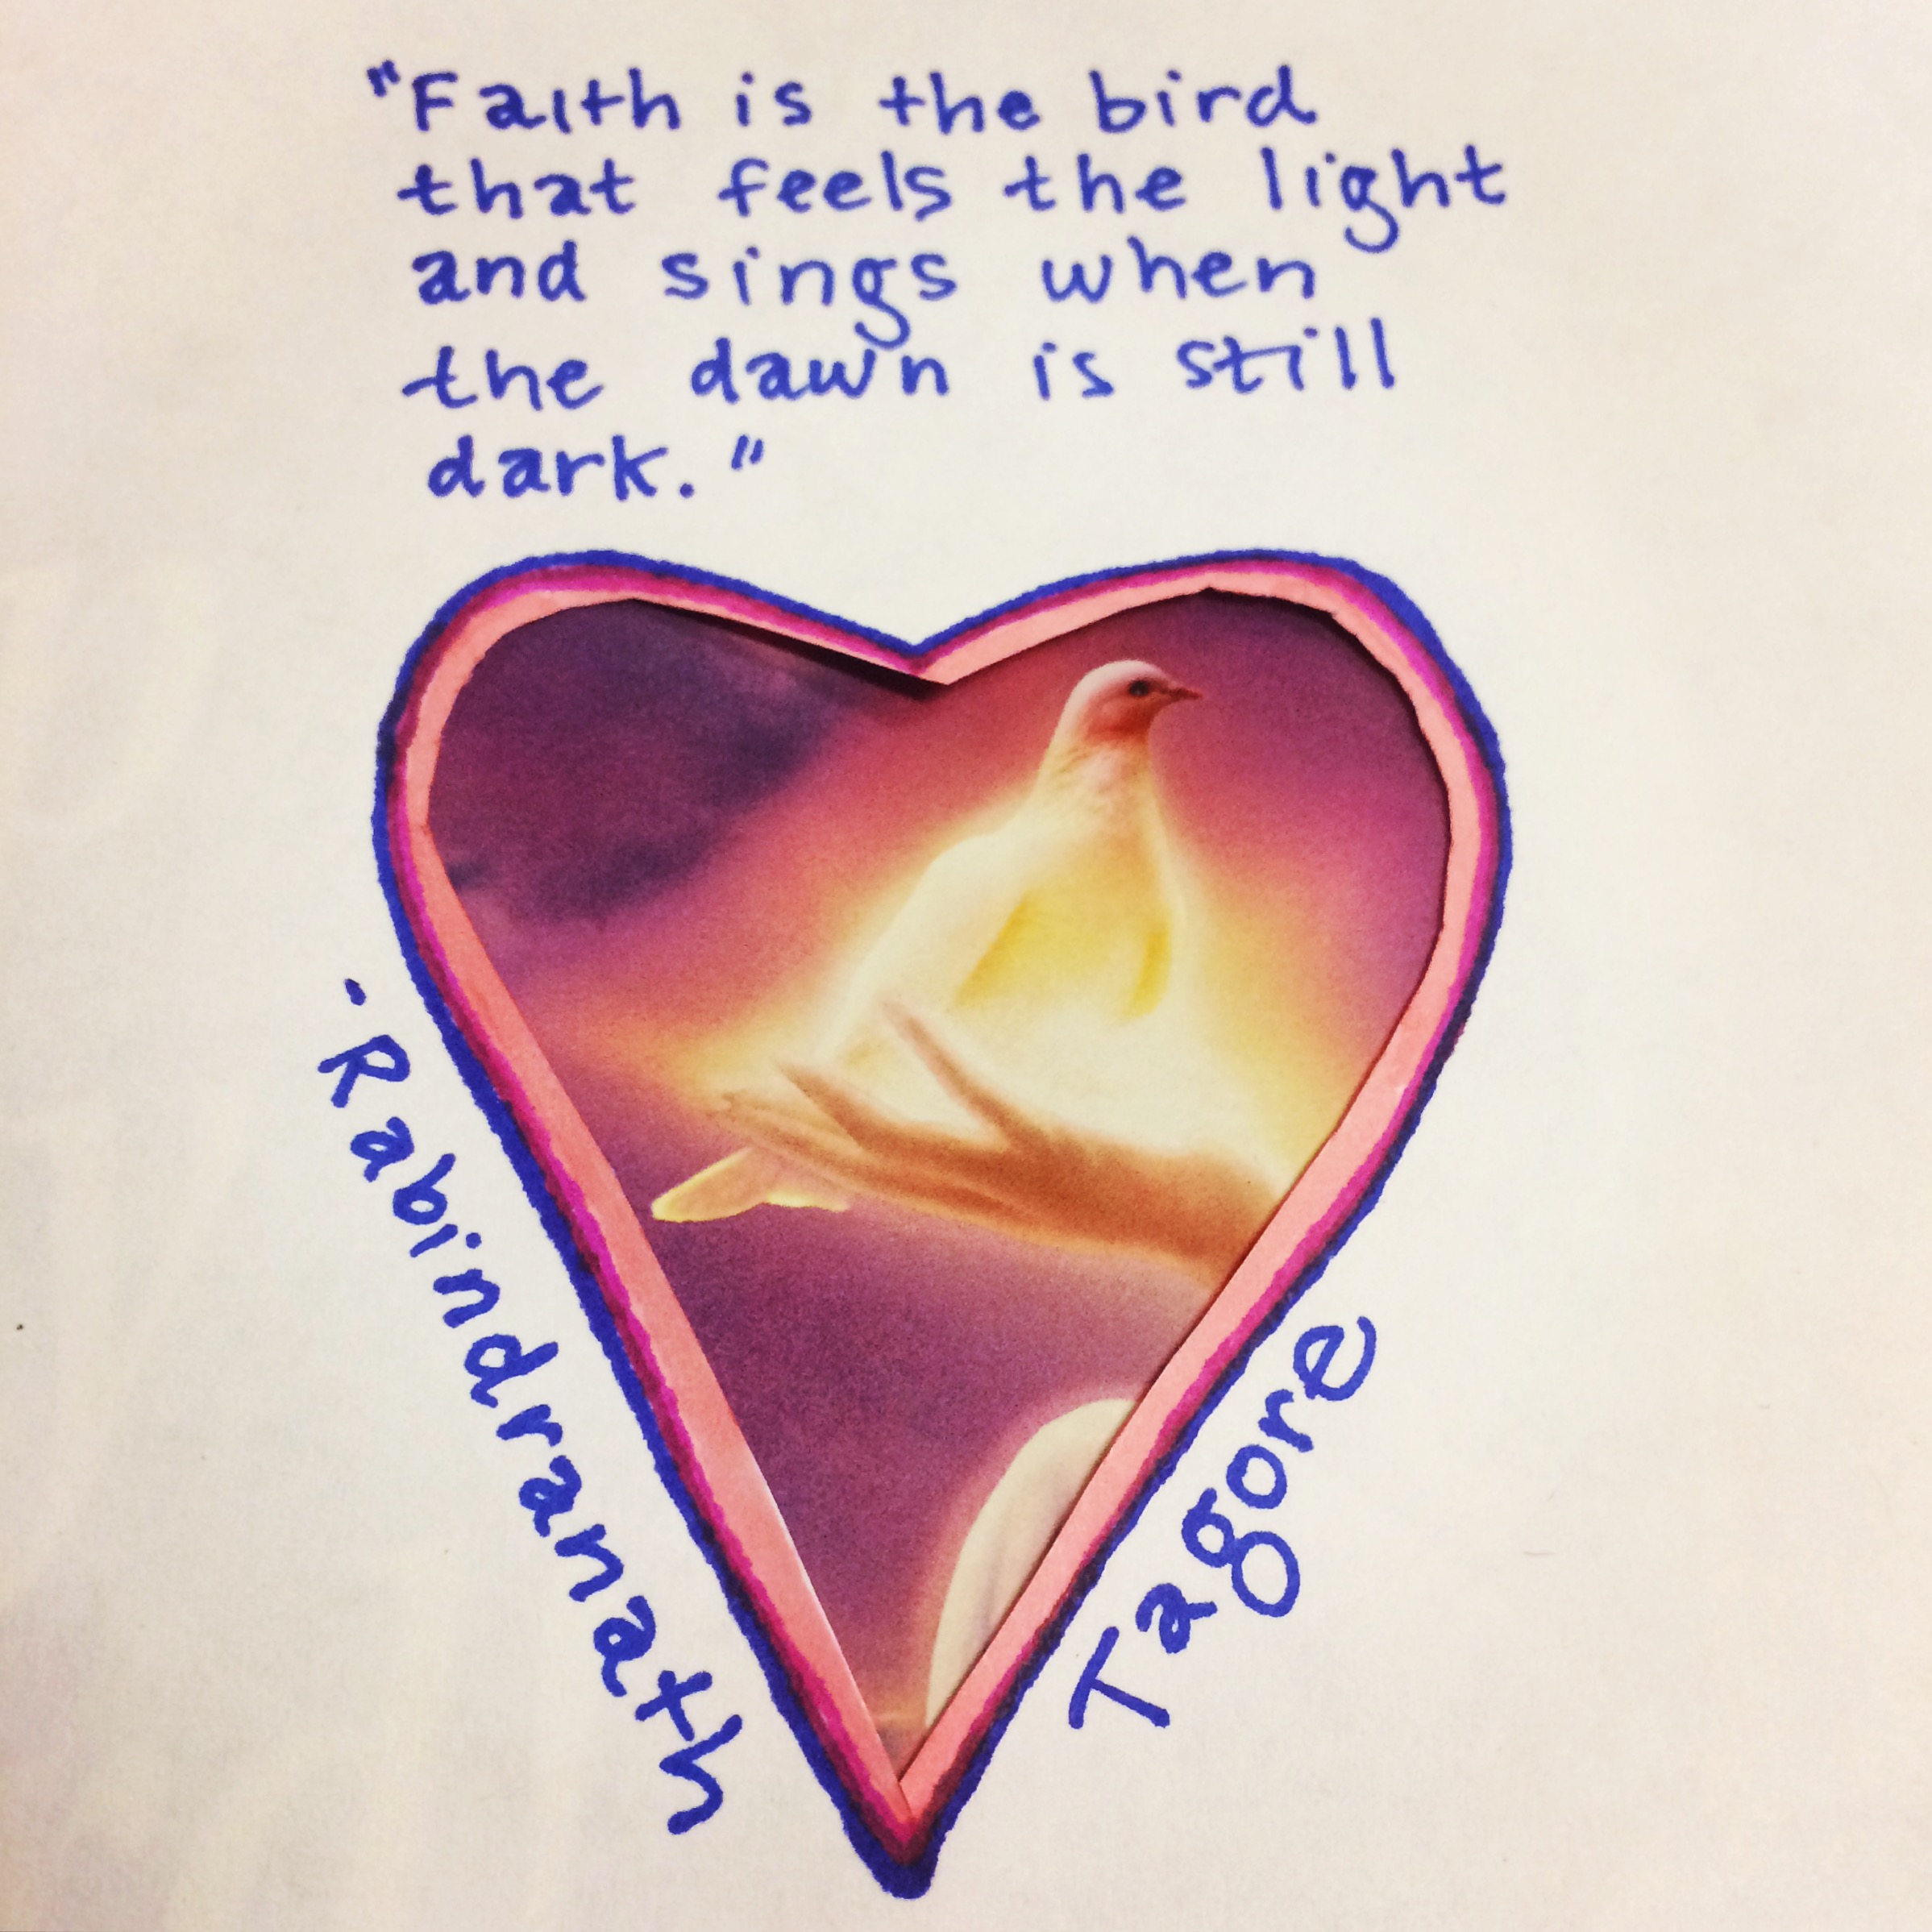 "Faith is the bird
that feels the light
and sings when
the dawn is still
dark."
-Rabindranath
Tagore